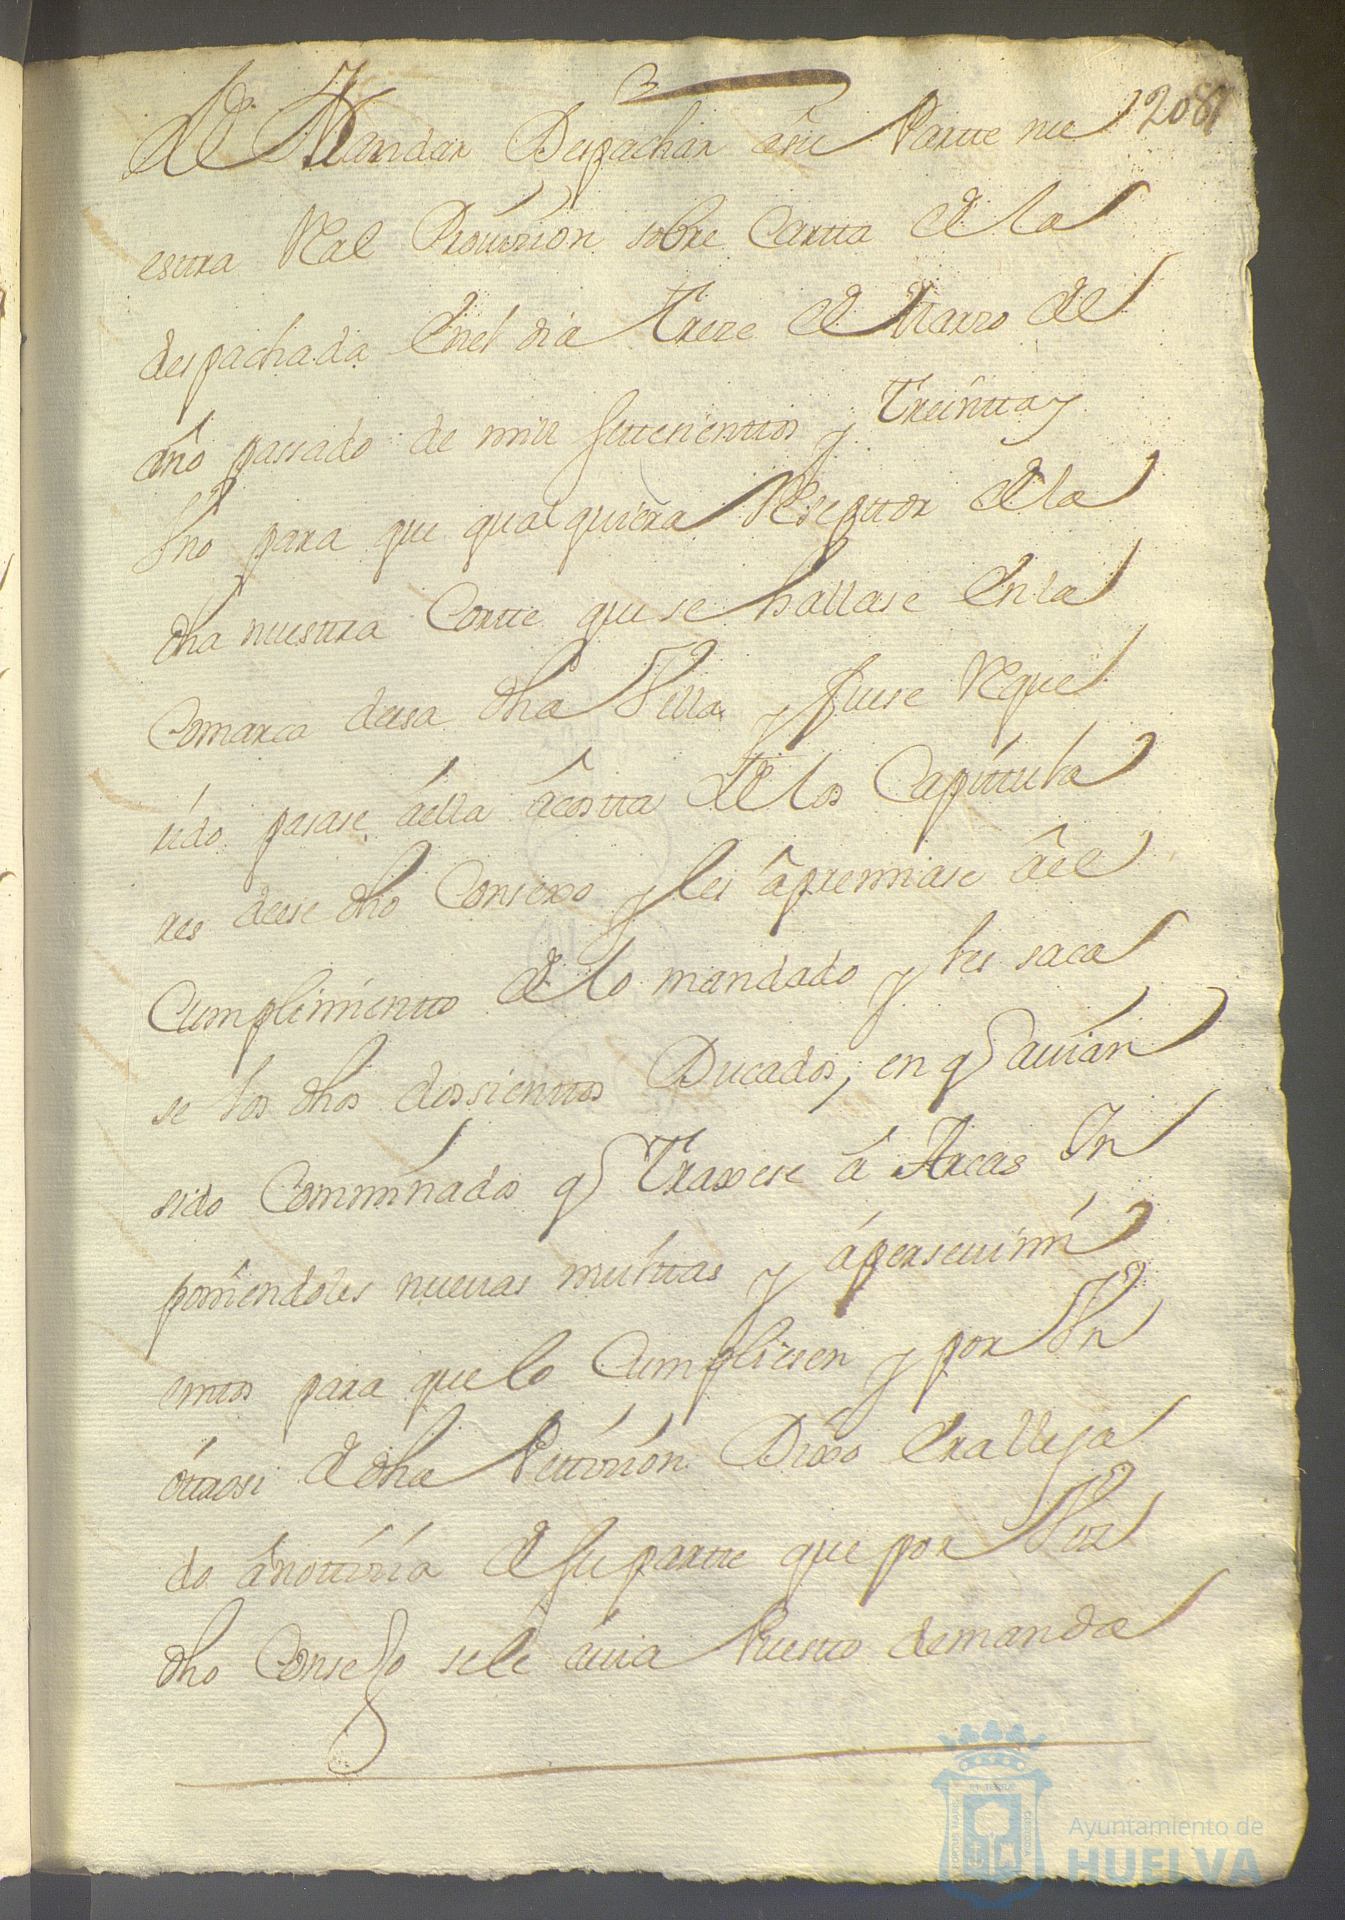 208
de Mandar Despachar a su Partte nu
estra Real Prouision sobre Cartta de la
despachada En el dia Treze de Marzo del
año passado de mill settesienttos y Treintta y
Uno para que qualquiera Reseptor de la
dha nuestra Cortte que se hallase En la
Comarca de esa dha Villa, y fuese Reque
rido pasase, áella ácostta de los Capitula
res de ese dho Consexo y les ápremiase áel
Cumplimientto de lo mandado y les saca
se los dhos dossienttos Ducados, en q auian
sido Comminados q Traxese á Arcas Im
poniendoles nueuas multtas y áperseuimi
emtos para que lo Cumpliesen y por Un
óttrosi de dha Pettision Dixo Era llega
do ánottisia de su partte que por Ese
dho Consejo se le áuia Puestto demanda
Ayuntamiento de
HUELVA